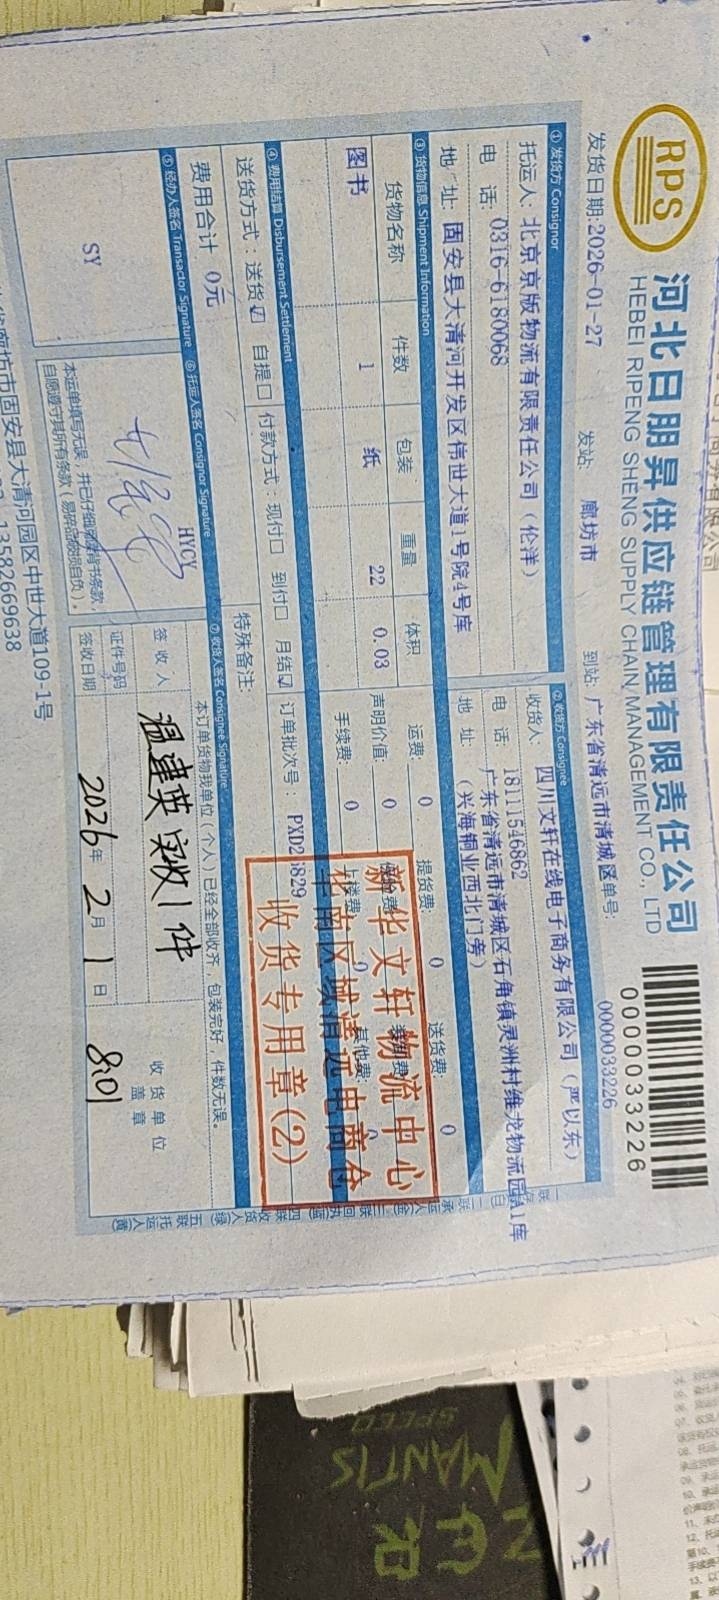 RPS
河北日朋昇供应链管理有限责任公司
HEBEI RIPENG SHENG SUPPLY CHAIN MANAGEMENT CO., LTD
0000033226
发货日期:2026-01-27 发站: 廊坊市 到站: 广东省清远市清城区 单号: 0000033226
① 发货方 Consignor ② 收货方 Consignee
托运人: 北京京版物流有限责任公司(伦洋)
电 话: 0316-6180068
地 址: 固安县大清河开发区伟世大道1号院4号库
收货人: 四川文轩在线电子商务有限公司(严以东)
电 话: 18111546862
地 址: 广东省清远市清城区石角镇灵洲村维龙物流园A1库
(兴海铜业西北门旁)
③ 货物信息 Shipment Information
货物名称 件数 包装 重量 体积
图书 1 纸 22 0.03
运费: 0 提货费: 0 送货费: 0
声明价值: 0
手续费: 0 上楼费: 0 其他费: 0
④ 费用结算 Disbursement Settlement
送货方式: 送货☑ 自提☐ 付款方式: 现付☐ 到付☐ 月结☑ 订单批次号:
费用合计 0元 特殊备注:
新华文轩物流中心
华南区域清远电商仓
收货专用章(2)
⑤ 经办人签名 Transactor Signature ⑥ 托运人签名 Consignor Signature ⑦ 收货人签名 Consignee Signature
SY
HYCY
本订单货物我单位(个人)已经全部收齐,包装完好,件数无误。
签收人 温建英 实收1件
证件号码
签收日期 2026年2月1日 8:01
收货单位
盖章
自愿遵守其所有条款(易碎品破损自负)。
固安县大清河园区中世大道109-1号
13582669638
MANTIS
SPEED